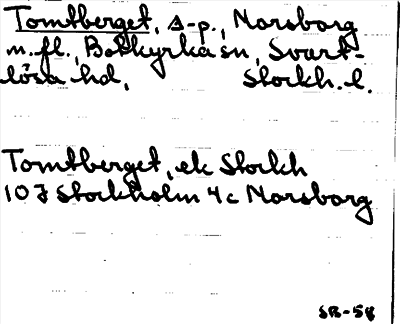 Tomtberget, Δ-p., Norsborg
m.fl., Botkyrka sn, Svart-
lösa hd, Stockh. l.
Tomtberget, ek Stockh
10 J Stockholm 4c Norsborg
SR-58